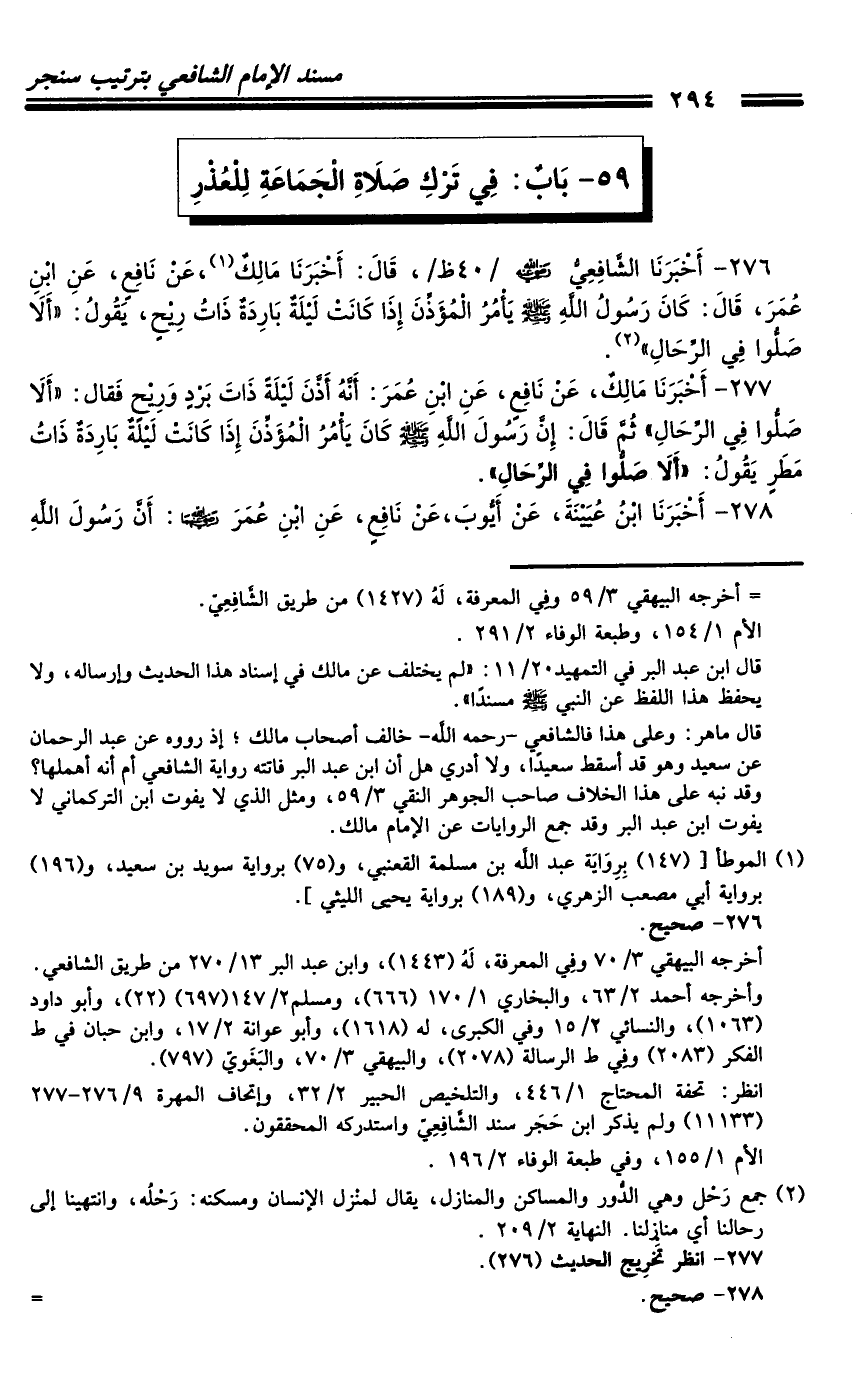 مسند الإمام الشافعي بترتيب سنجر
٢٩٤
٥٩- بَابٌ: فِي تَرْكِ صَلَاةِ الْجَمَاعَةِ لِلْعُذْرِ
٢٧٦- أَخْبَرَنَا الشَّافِعِيُّ رضي الله عنه /٤٠ظ/، قَالَ: أَخْبَرَنَا مَالِكٌ(١)، عَنْ نَافِعٍ، عَنِ ابْنِ
عُمَرَ، قَالَ: كَانَ رَسُولُ اللَّهِ ﷺ يَأْمُرُ الْمُؤَذِّنَ إِذَا كَانَتْ لَيْلَةٌ بَارِدَةٌ ذَاتُ رِيْحٍ، يَقُولُ: «أَلَا
صَلُّوا فِي الرِّحَالِ»(٢).
٢٧٧- أَخْبَرَنَا مَالِكٌ، عَنْ نَافِعٍ، عَنِ ابْنِ عُمَرَ: أَنَّهُ أَذَّنَ لَيْلَةً ذَاتَ بَرْدٍ وَرِيْحٍ فَقال: «أَلَا
صَلُّوا فِي الرِحَالِ» ثُمَّ قَالَ: إِنَّ رَسُولَ اللَّهِ ﷺ كَانَ يَأْمُرُ الْمُؤَذِّنَ إِذَا كَانَتْ لَيْلَةٌ بَارِدَةٌ ذَاتُ
مَطَرٍ يَقُولُ: «أَلَا صَلُّوا فِي الرِّحَالِ».
٢٧٨- أَخْبَرَنَا ابْنُ عُيَيْنَةَ، عَنْ أَيُّوبَ، عَنْ نَافِعٍ، عَنِ ابْنِ عُمَرَ رضي الله عنهما: أَنَّ رَسُولَ اللَّهِ
= أخرجه البيهقي ٥٩/٣ وفِي المعرفة، لَهُ (١٤٢٧) من طريق الشَّافِعِيّ.
الأم ١٥٤/١، وطبعة الوفاء ٢٩١/٢ .
قال ابن عبد البر في التمهيد١١/٢٠: «لم يختلف عن مالك في إسناد هذا الحديث وإرساله، ولا
يحفظ هذا اللفظ عن النبي ﷺ مسندًا».
قال ماهر: وعلى هذا فالشافعي -رحمه اللَّه- خالف أصحاب مالك ؛ إذ رووه عن عبد الرحمان
عن سعيد وهو قد أسقط سعيدًا، ولا أدري هل أن ابن عبد البر فاتته رواية الشافعي أم أنه أهملها؟
وقد نبه على هذا الخلاف صاحب الجوهر النقي ٥٩/٣، ومثل الذي لا يفوت ابن التركماني لا
يفوت ابن عبد البر وقد جمع الروايات عن الإمام مالك.
(١) الموطأ [ (١٤٧) بِرِوَايَة عبد اللَّه بن مسلمة القعنبي، و(٧٥) برواية سويد بن سعيد، و(١٩٦)
برواية أبي مصعب الزهري، و(١٨٩) برواية يحيى الليثي ].
٢٧٦- صحيح.
أخرجه البيهقي ٧٠/٣ وفِي المعرفة، لَهُ (١٤٤٣)، وابن عبد البر ٢٧٠/١٣ من طريق الشافعي.
وأخرجه أحمد ٦٣/٢، والبخاري ١٧٠/١ (٦٦٦)، ومسلم١٤٧/٢(٦٩٧) (٢٢)، وأبو داود
(١٠٦٣)، والنسائي ١٥/٢ وفي الكبرى، له (١٦١٨)، وأبو عوانة ١٧/٢، وابن حبان في ط
الفكر (٢٠٨٣) وفِي ط الرسالة (٢٠٧٨)، والبيهقي ٧٠/٣، والبَغَويّ (٧٩٧).
انظر: تحفة المحتاج ٤٤٦/١، والتلخيص الحبير ٣٢/٢، وإتحاف المهرة ٢٧٦/٩-٢٧٧
(١١١٣٣) ولم يذكر ابن حَجَر سند الشَّافِعِيّ واستدركه المحققون.
الأم ١٥٥/١، وفي طبعة الوفاء ١٩٦/٢ .
(٢) جمع رَحْل وهي الدُّور والمساكن والمنازل، يقال لمنْزل الإنسان ومسكنه: رَحْلُه، وانتهينا إلى
رحالنا أي منازِلنا. النهاية ٢٠٩/٢ .
٢٧٧- انظر تَخْرِيج الحديث (٢٧٦).
٢٧٨- صحيح.
=